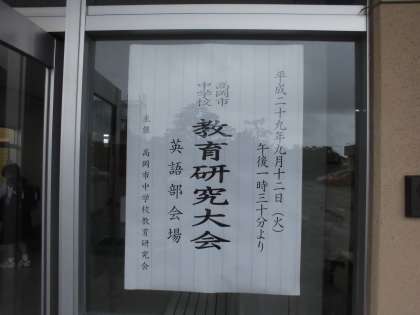 平成二十九年九月十二日（火）
午後一時三十分より
高岡市
中学校
教育研究大会
英語部会場
主催　高岡市中学校教育研究会